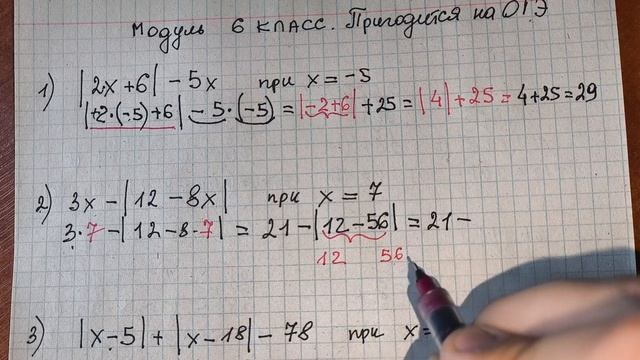 Модуль 6 класс. Пригодится на ОГЭ
1) |2x+6| - 5x при x = -5
|+2·(-5)+6| - 5·(-5) = |-2+6| + 25 = |4| + 25 = 4+25=29
2) 3x - |12 - 8x| при x = 7
3·7 - |12-8·7| = 21 - |12-56| = 21 -
12 56
3) |x-5| + |x-18| - 78 при x=